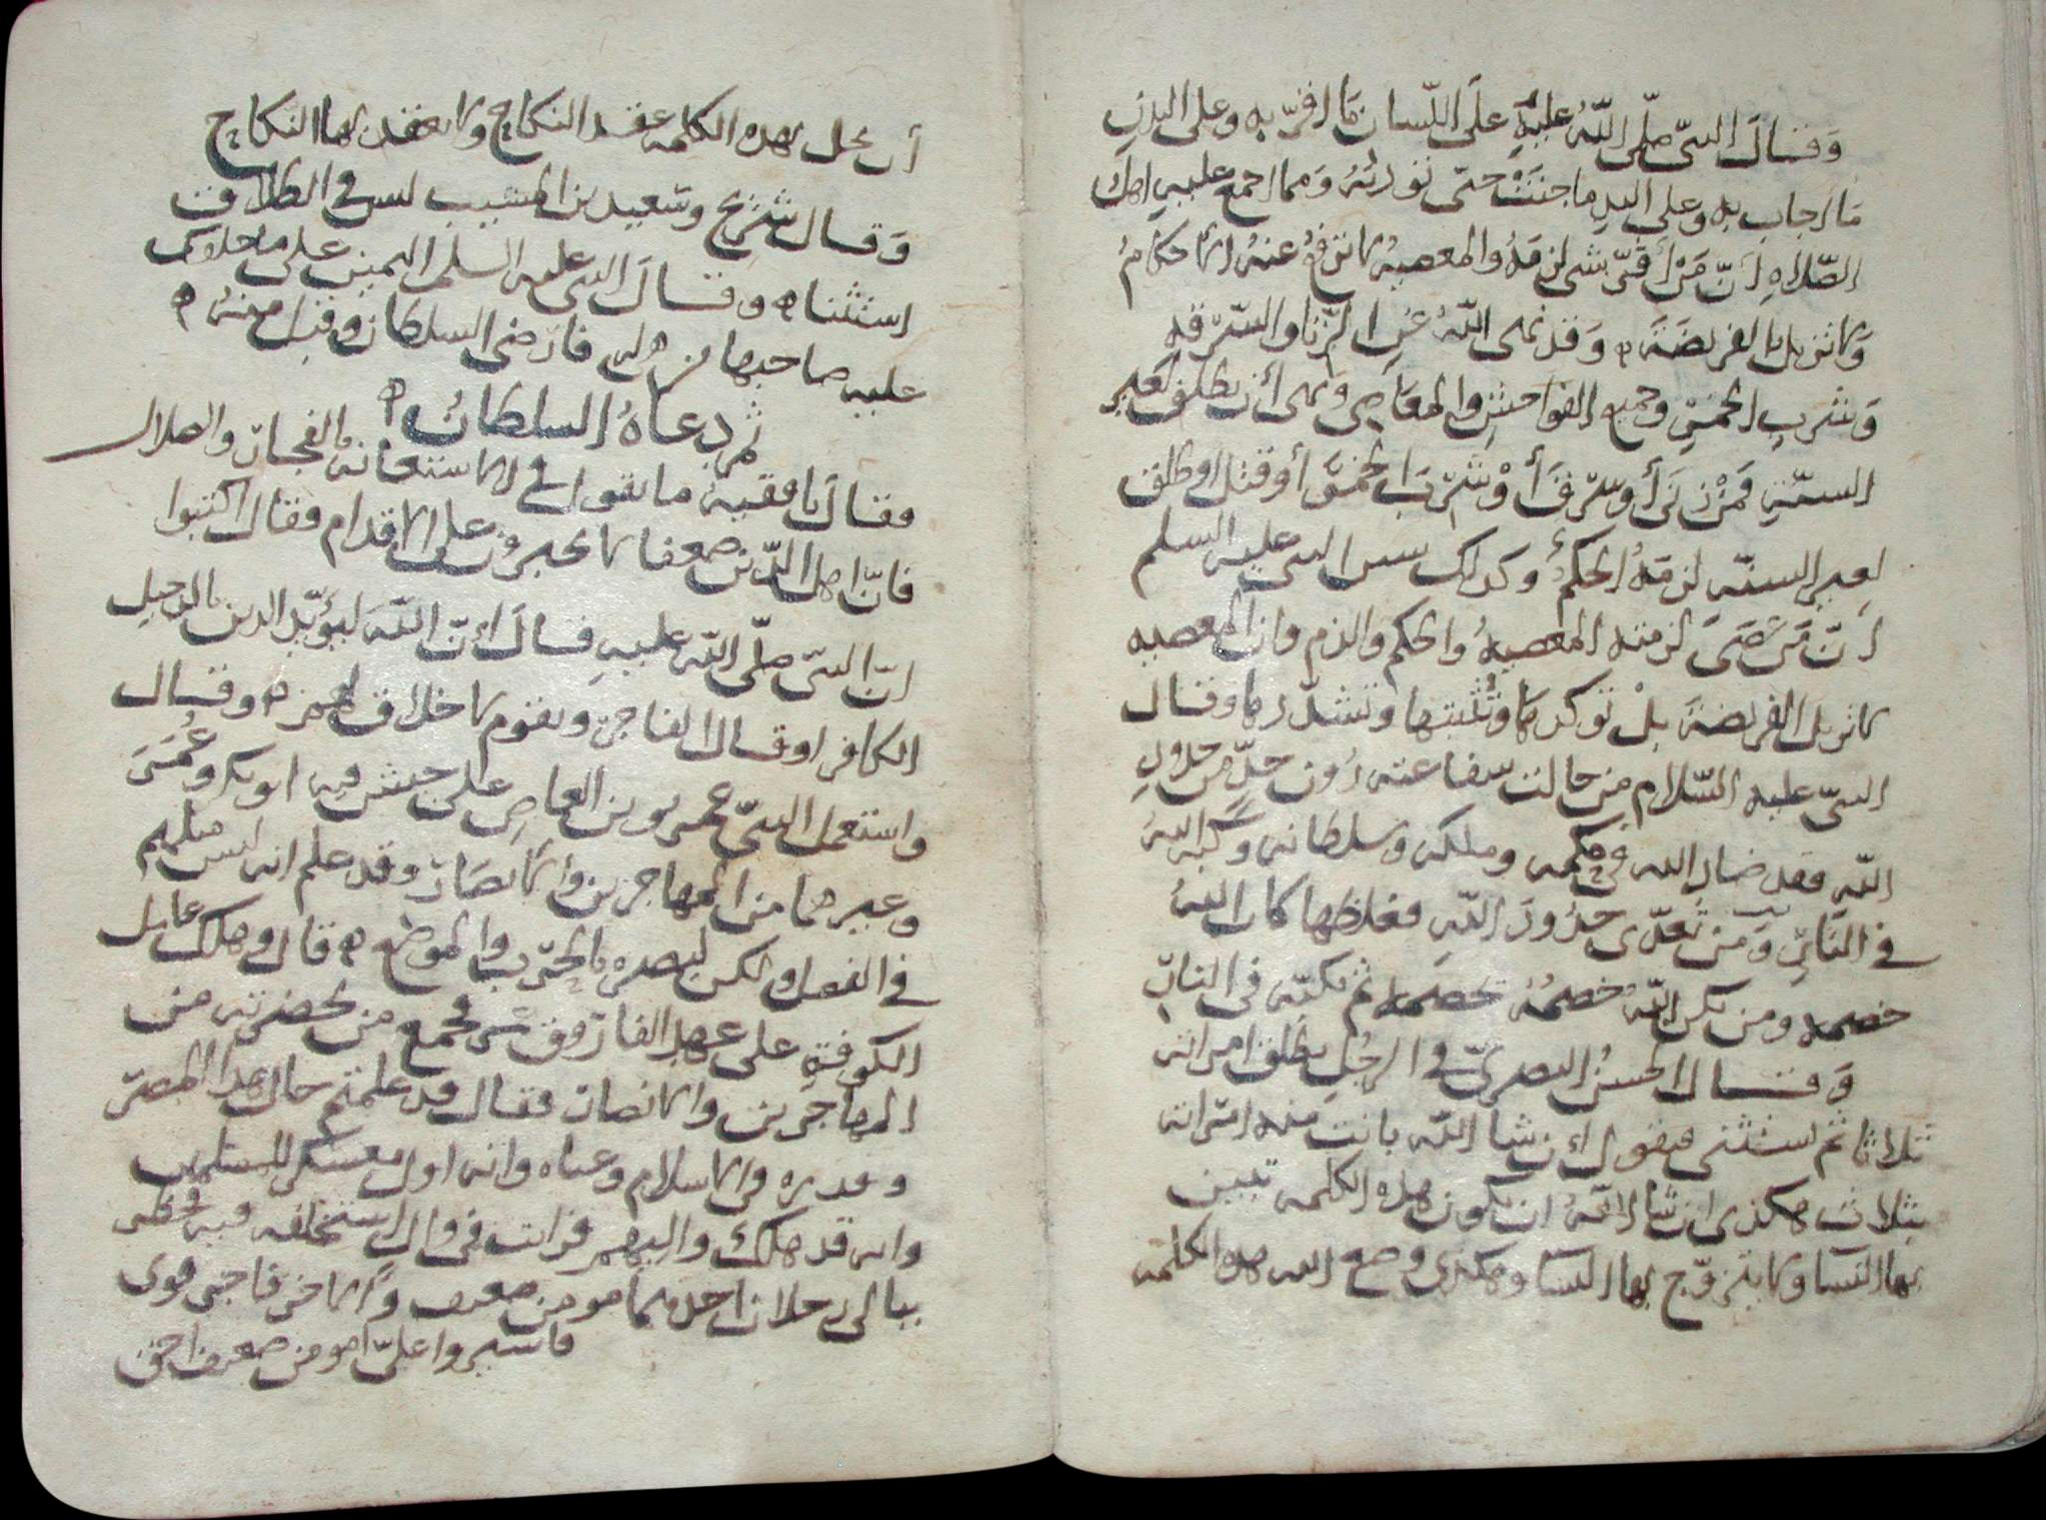 وَقَالَ النبىّ صلّى اللّهُ عليهِ علَى اللّسان مَا اقرّ به وعلى البدنِ
مَا اجاب به وعلى اليدِ ما جنَتْ حتّى تؤدّيَهُ وَمما اجمع عليهِ اهل
الصّلاهِ انّ مَنْ أَقَرّ بشى لزمَهُ والمعصيهُ لا ترفعُ عنهُ الأحكامُ
وَلا تزيل الفريضَةَ ٩ وَقد نهى اللّهُ عَنِ الزّنا والسّرقه
وَشربِ الخمْرِ وجميع الفواحشِ والمعَاصِى وَنهى أن يطلّق لغَير
السنّةِ فَمَنْ زنَى أو سرَقَ أَوْ شَرِبَ الخمْرَ أو قتل او طلق
لغير السنّه لزمَهُ الحكمُ وكذلك سن النبى عليه السلم
انّ مَن عَصَى لزمته المعصيهُ والحكم والذم وان المعصيه
لا تزيل الفريضةَ بلْ تؤكدُهَا وتُثبتها وتشدّدها وقال
النبىّ عليه السّلام من حالت شفاعته دُون حدٍّ من حدودِ
اللّهِ فقد ضادّ الله فى حكمه وملكه وسلطانه وكبّه اللهُ
فى النَّارِ وَمَن تعدّى حدُودَ اللّهِ فغلظها كان اللهُ
خصمه ومن يكن اللّهُ خصمُهُ يخصمه ثم يكبّه فى النارِ
وَقَال الحسنُ البصرىّ فى الرجُلِ يطلق امراته
ثلاثا ثم استثنى فيقول ان شا اللّه بانت منه امراته
بثلاث هكذى ان شا اللّهُ ان تكون هذه الكلمه تبين
بها النّسا ولا يتزوّج بها النسا وهكذى وضع الله هذه الكلمه
أن تحل بهذه الكلمه عقد النكاح ولا يعقد بها النكاح
وَقال شُرَيح وسَعيد بن المسَيب ليس فى الطلاق
استثنا ٩ وقالَ النبى عليه السلم اليمين على ما حلف
عليه صاحبها فرضى السلطان وقبل منه ٩
ثم دعاهُ السلطانُ ٩
فقال يا فقيه ما تقول فى الاستعانه بالفجار والضلال
فانّ اهل الدّين ضعفا لا يجبرون على الاقدام فقال اكتبوا
انّ النبىّ صلّى اللّه عليهِ قالَ انّ اللّهَ ليؤيّد الدين بالرجل
الكافر او قال الفاجر وبقوم لا خلاق لهم ٩ وقال
واستعمل النبىّ عمرو بن العاصِ على جيش فيه ابو بكر وعُمَر
وغيرهما من المهاجرين والأنصَار وقد علم انه ليس مثلهم
فى الفضل ولكن لبصره بالحرب والموضع ٩ قال وهلك عامل
الكوفةِ على عهد الفاروق عمر فجمع من بحضرته من
المهاجرين والانصار فقال قد علمتم حال هذا المصر
وقدره فى الاسلام وغناه وانه اول معسكر للمسلمين
وانه قد هلك واليهم فرايت فى من استخلفه فيه فخطر
ببالى رجلان احدهما مومن ضعيف والآخر فاجر قوى
فاشيروا علىّ امومن ضعيف احق